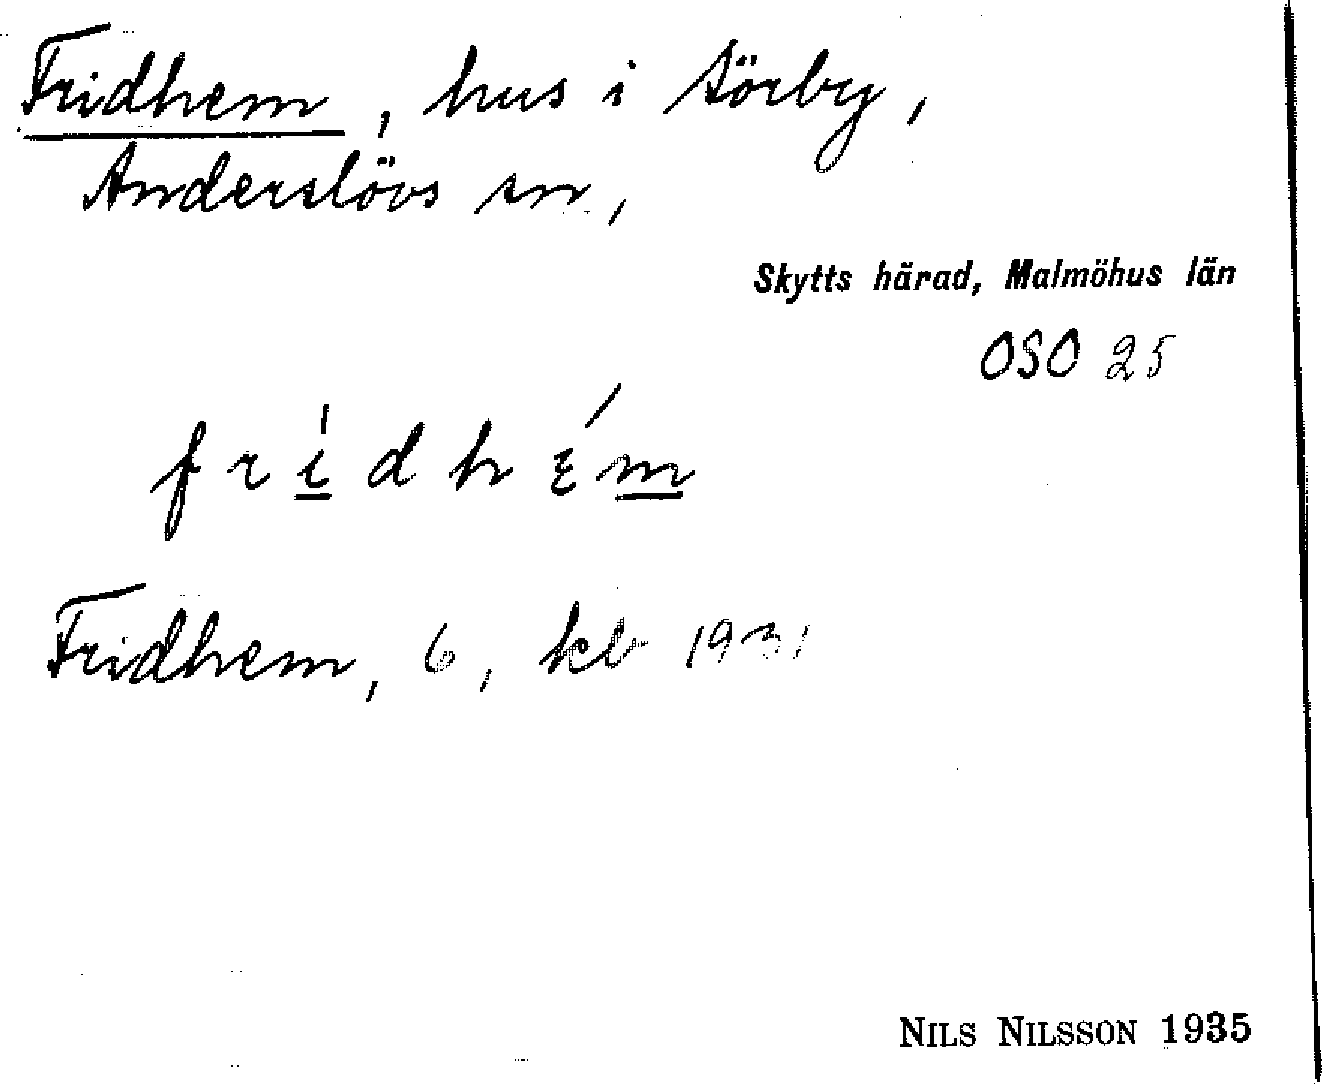 Fridhem, hus i Sörby,
Anderslövs sn,
Skytts härad, Malmöhus län
OSO 25
frìdhɛ́m
Fridhem, 6, kb 1931
NILS NILSSON 1935